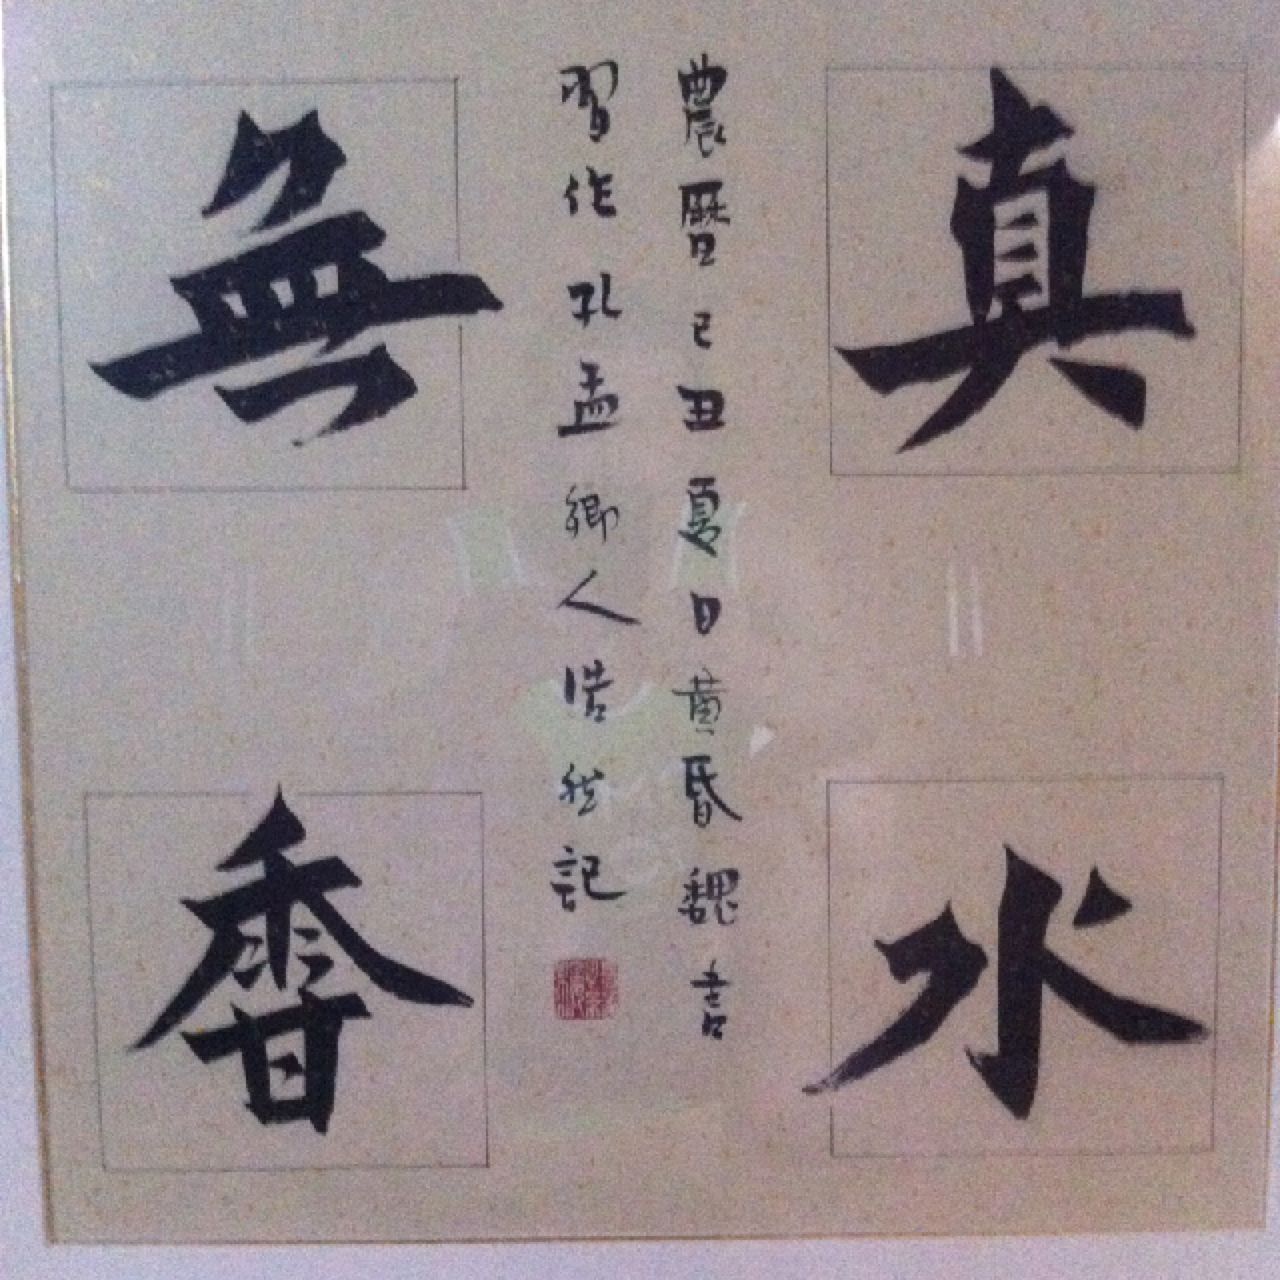 真水
無香
農曆己丑夏日黄昏魏書
習作孔孟鄉人浩然記